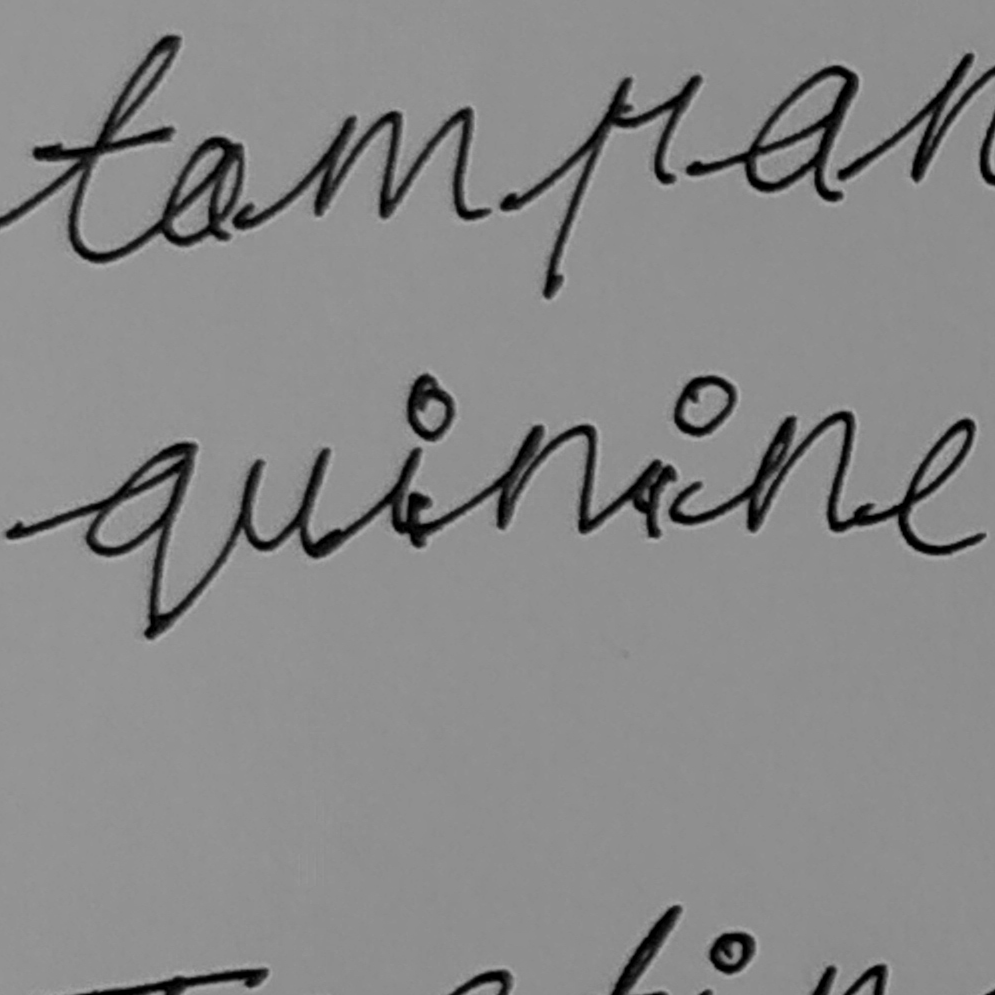 tampan
quinine